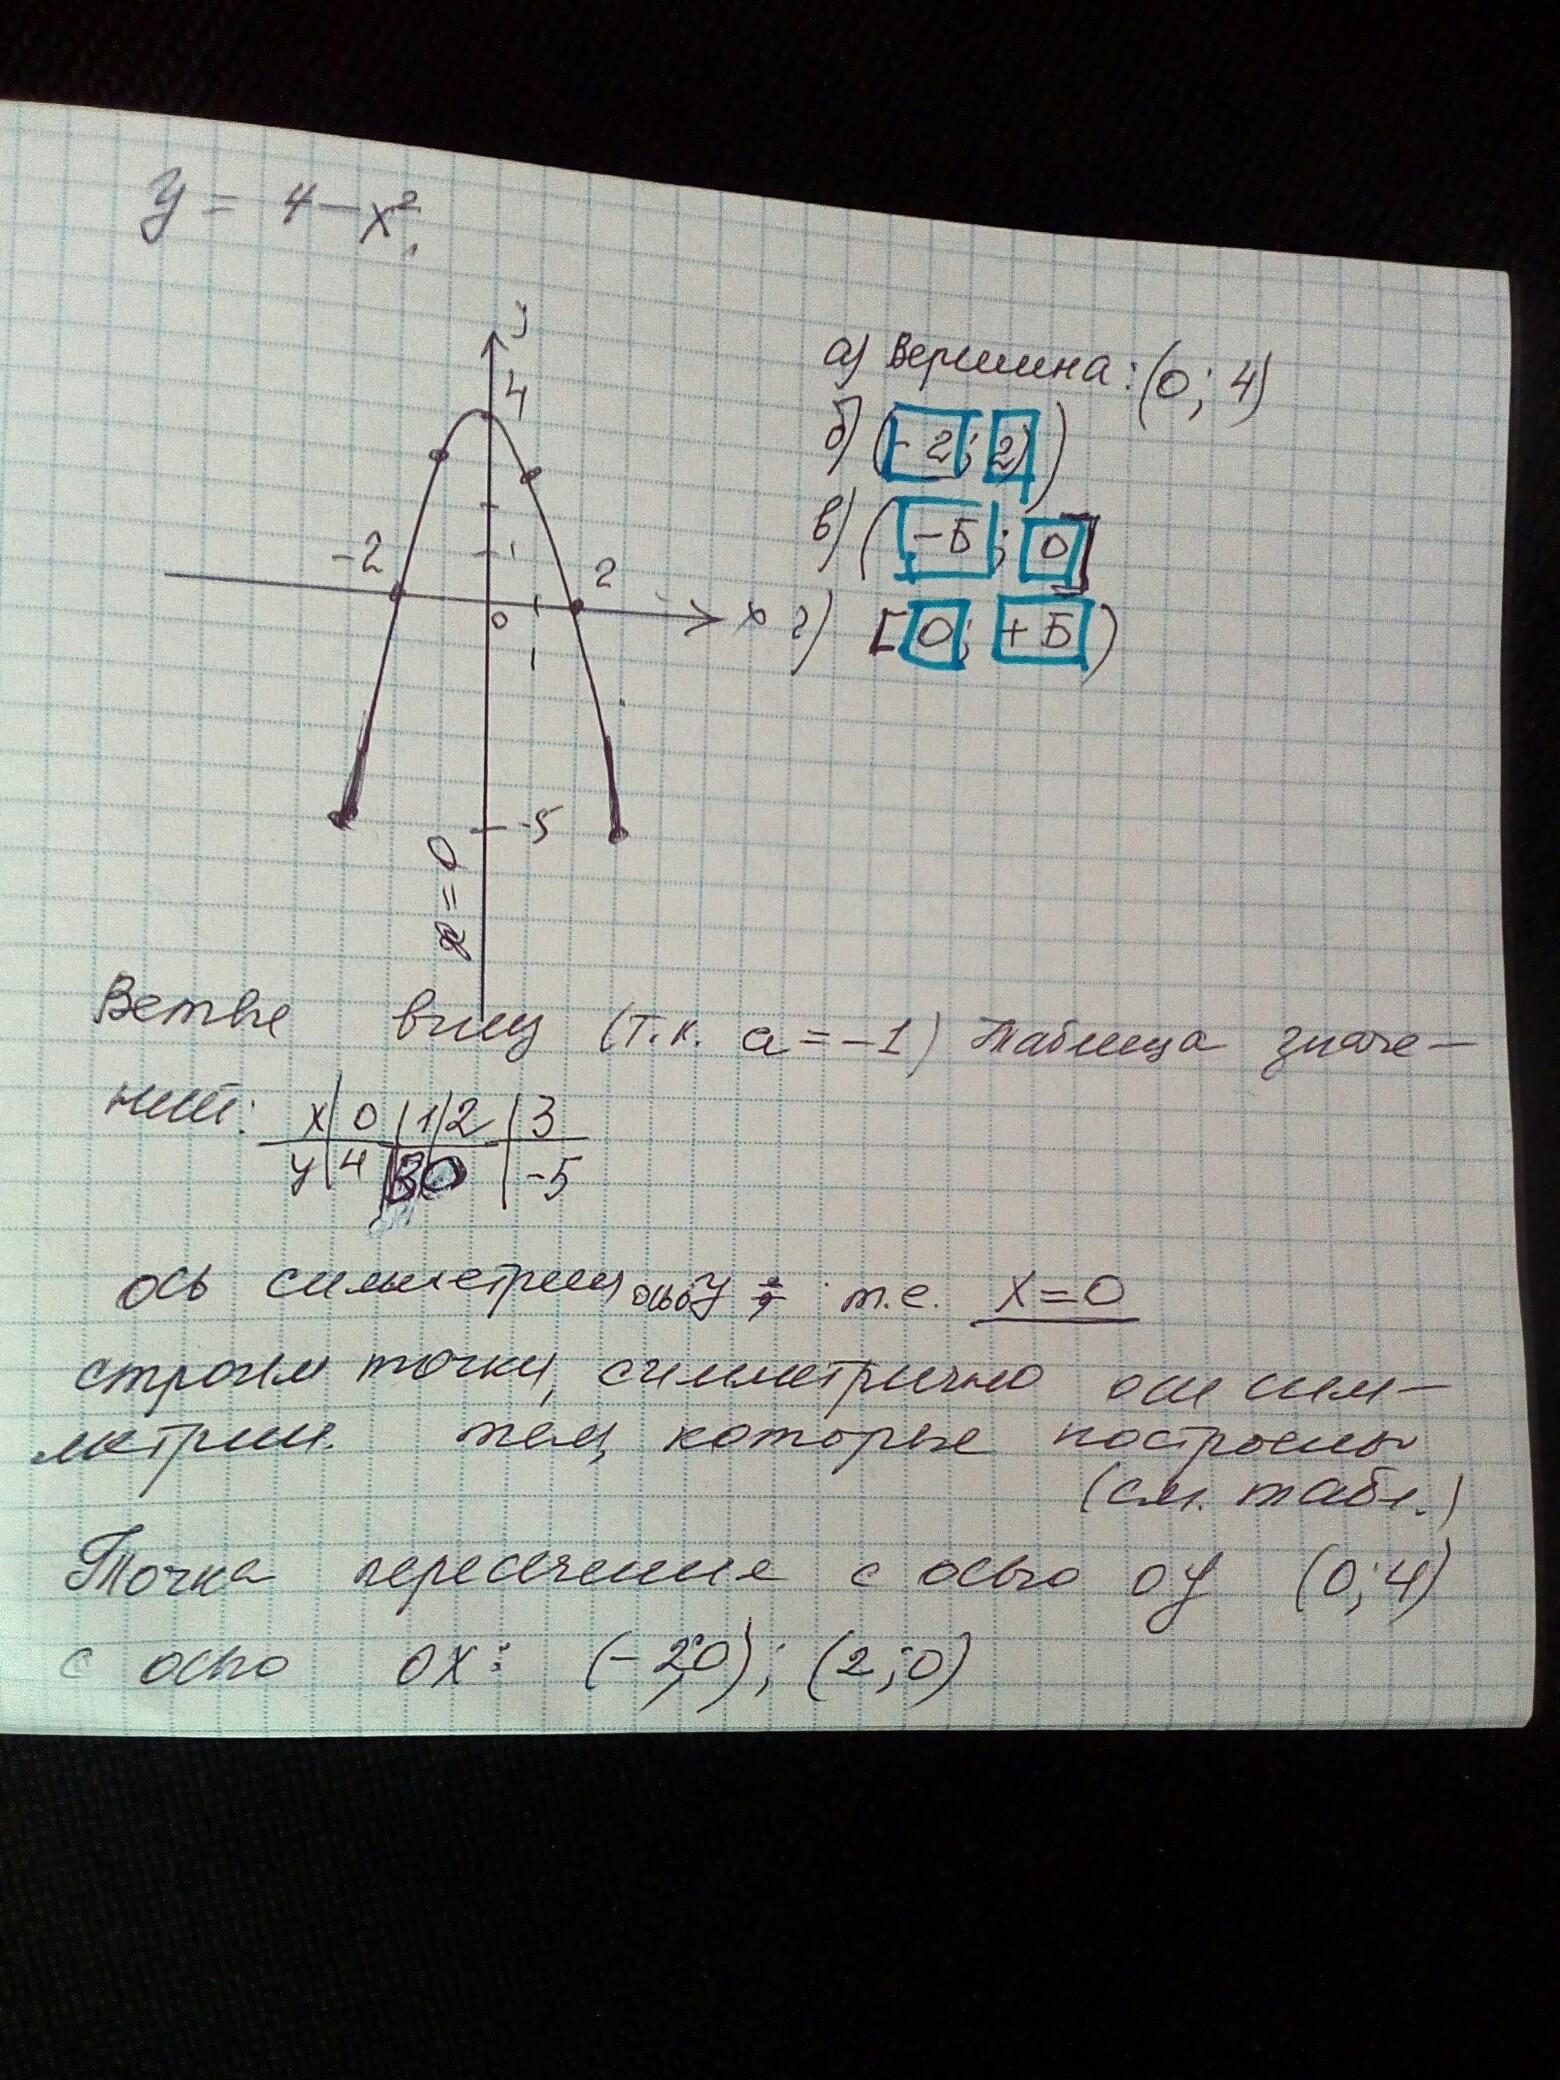 y = 4 - x²,
y
4
а) Вершина: (0; 4)
б) (-2; 2)
в) (-Б; 0]
г) [0; +Б)
-2
2
1
0
1
x
-5
x = 0
Ветве вниз (т.к. a = -1) Таблица значе-
ний: x | 0 | 1 | 2 | 3
y | 4 | 3 | 0 | -5
ось симметрии осьоy т.е. x = 0
строим точки, симметрично оси сим-
метрии. тем, которые построены
(см. табл.)
Точка пересечение с осью oy (0; 4)
с осью ox: (-2; 0); (2; 0)